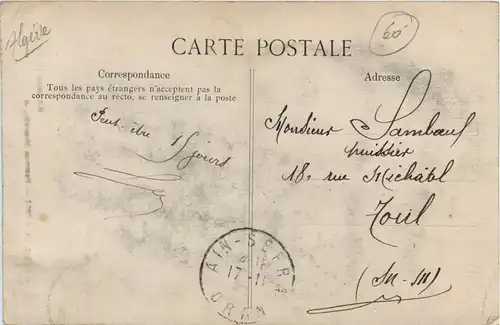 Algérie
60
CARTE POSTALE
Correspondance
Tous les pays étrangers n'acceptent pas la
correspondance au recto, se renseigner à la poste
Peut-être
15 jours
Adresse
Monsieur
huissier
18 rue Michâtel
Toul
(M-M)
AIN-SEFRA
17-11
ORAN